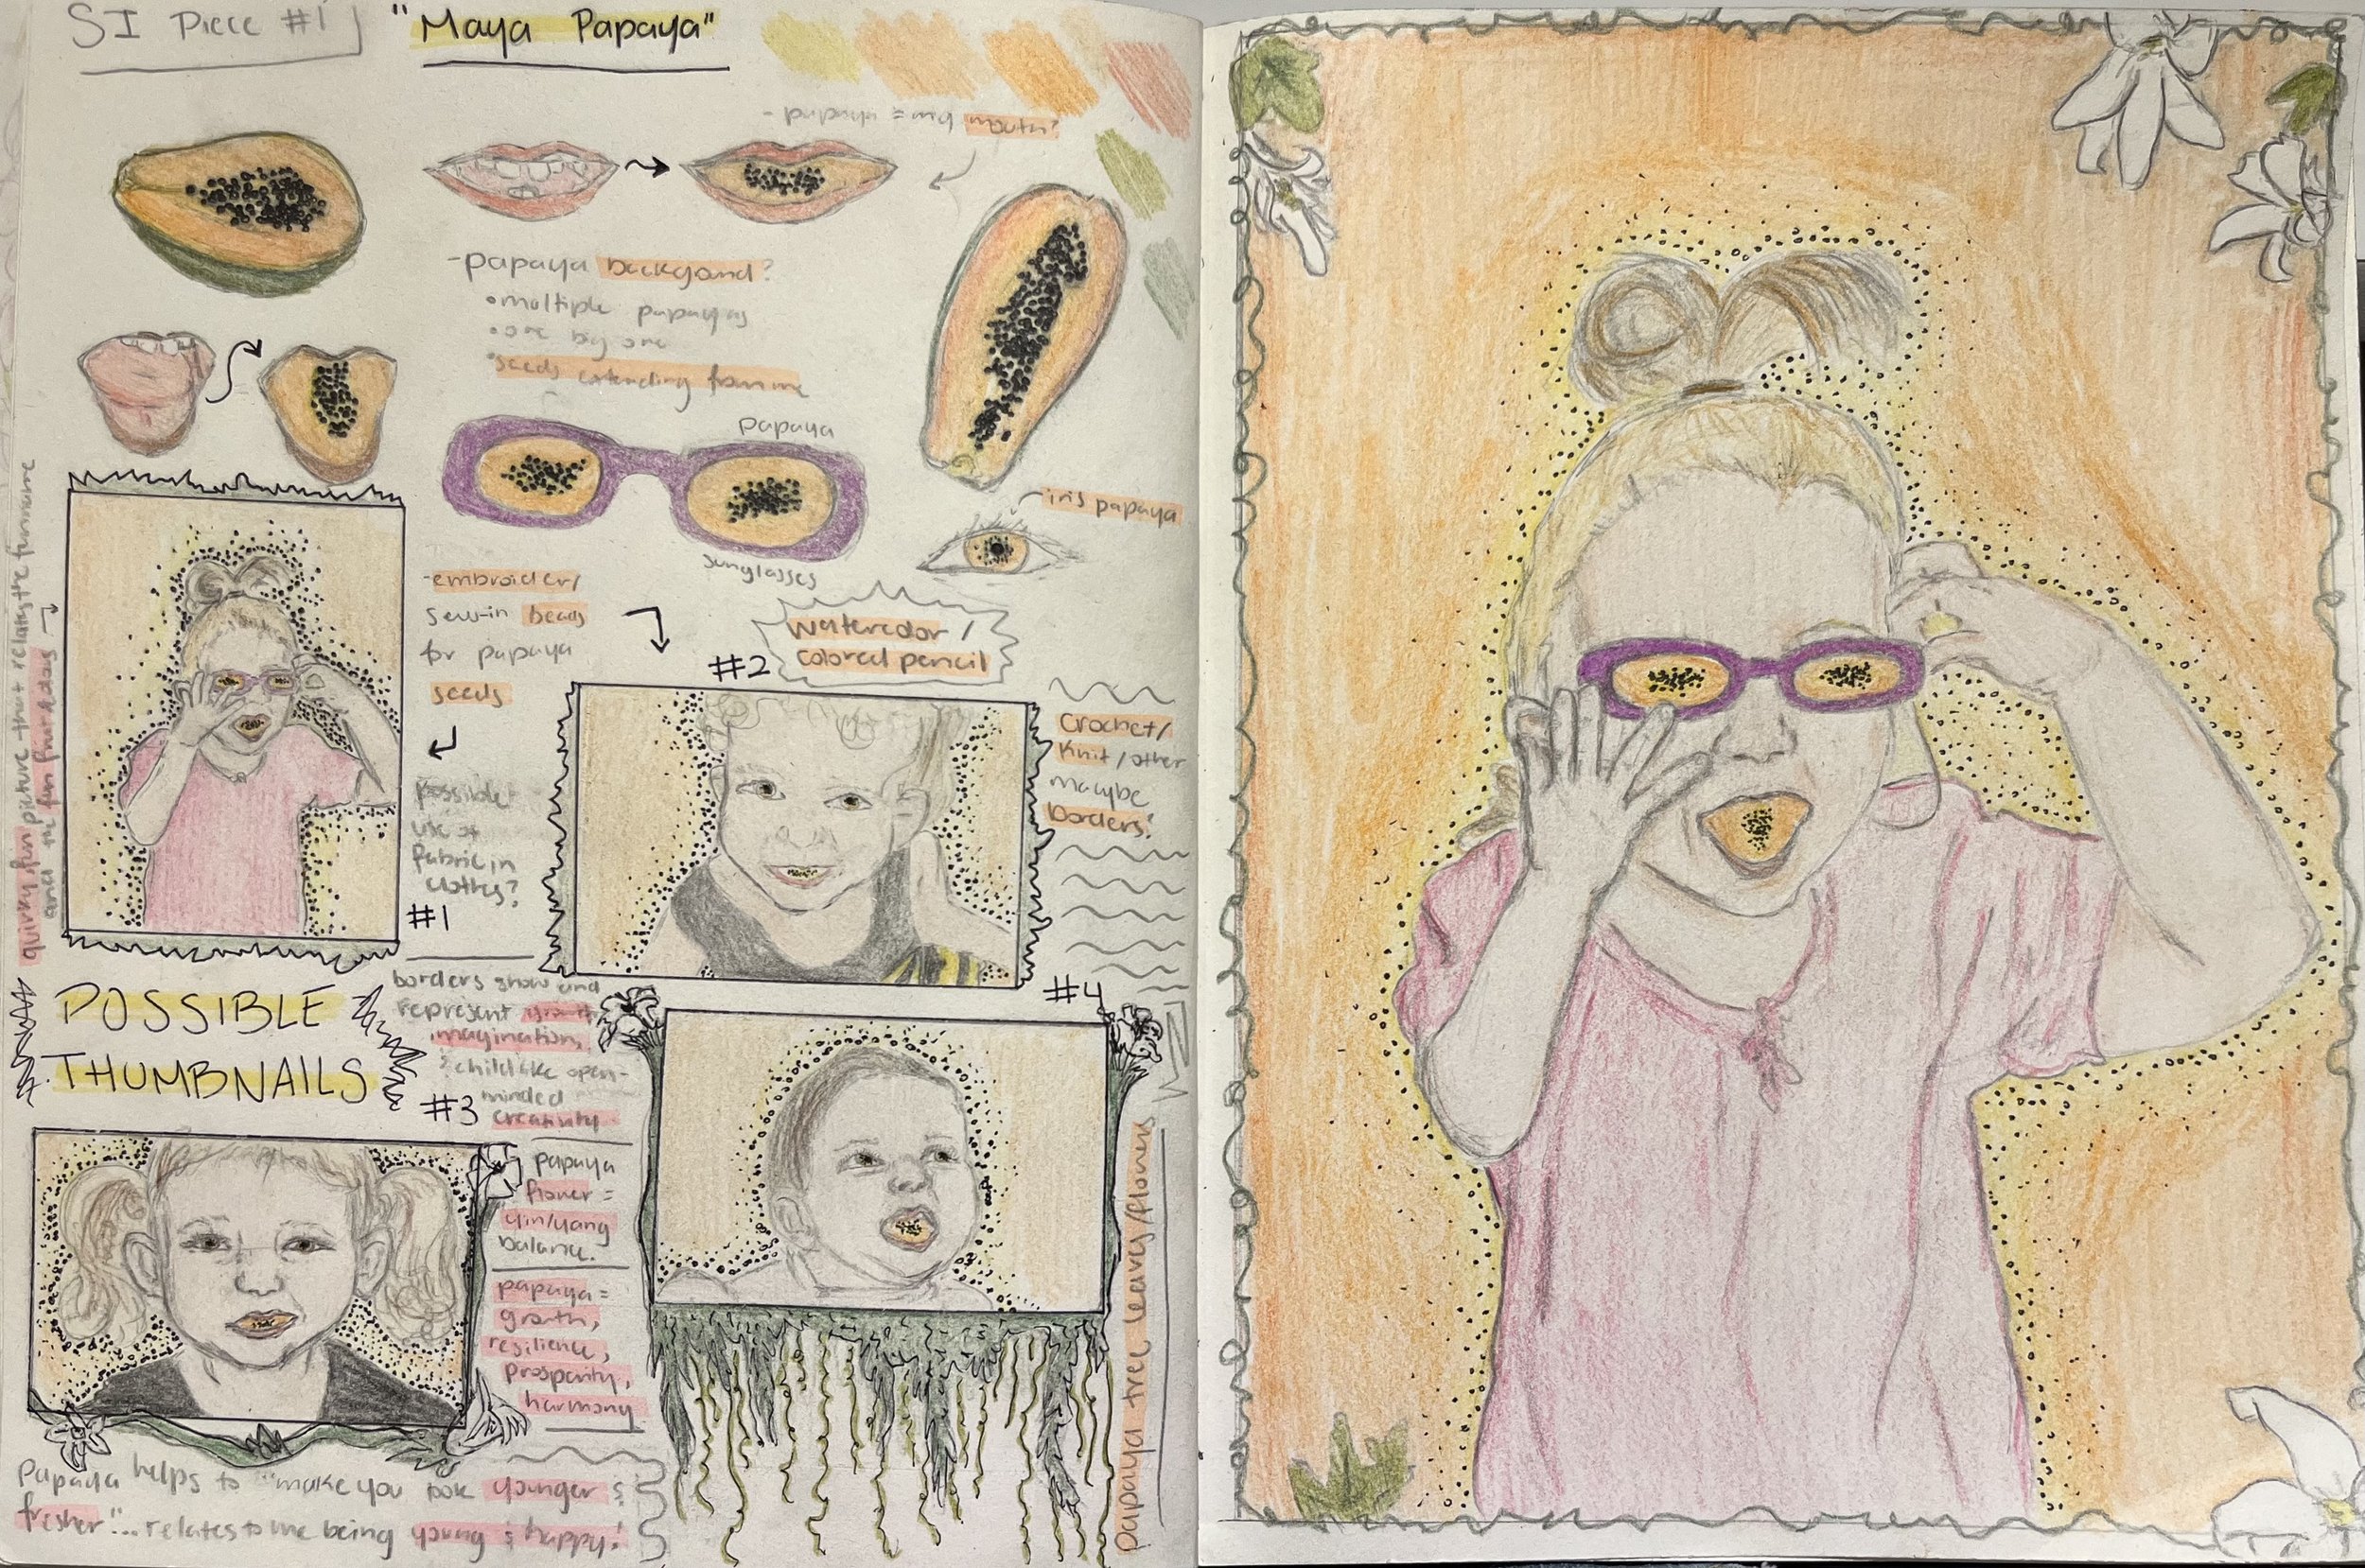 SI Piece #1
"Maya Papaya"
- papaya = my mouth?
-papaya backgound?
•multiple papayas
•one big one
•seeds extending from me
papaya
sunglasses
iris papaya
-embroider/
sew-in beads
for papaya
seeds
watercolor /
colored pencil
#2
Crochet/
Knit/other
maybe
borders?
quirky, fun picture that relates the
and the fun fruit & days
possible
use of
fabric in
clothes?
#1
POSSIBLE
THUMBNAILS
borders grow and
represent growth,
imagination,
& childlike open-
minded
creativity
#4
#3
papaya
flower =
yin/yang
balance.
papaya =
growth,
resilience,
prosperity,
harmony
papaya tree leaves/flowers
Papaya helps to "make you look younger &
fresher"... relates to me being young & happy!